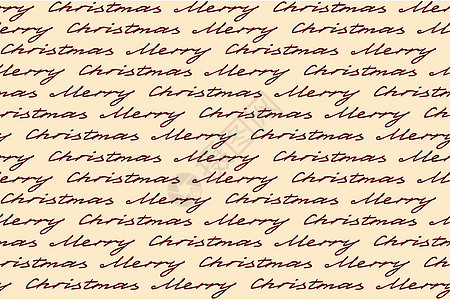 rry Christmas Merry Christmas Mer
erry Christmas Merry Christmas
Christmas Merry Christmas Merry
Merry Christmas Merry Christmas
mas Merry Christmas Merry Chris
tmas Merry Christmas Merry Ch
y Christmas Merry Christmas M
rry Christmas Merry Christmas Mer
erry Christmas Merry Christmas
Christmas Merry Christmas Merry
Merry Christmas Merry Christmas
mas Merry Christmas Merry Chris
tmas Merry Christmas Merry Ch
y Christmas Merry Christmas M